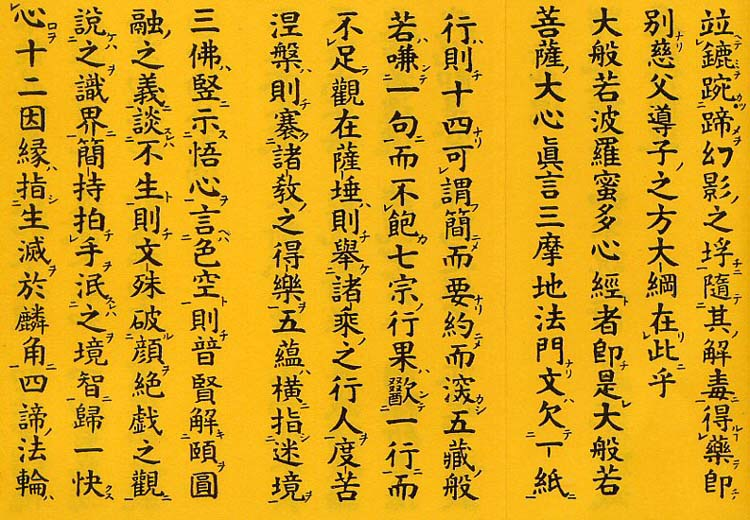 竝鑣踠蹄幻影之埒隨其解毒得藥即
別慈父導子之方大綱在此乎
大般若波羅蜜多心經者即是大般若
菩薩大心眞言三摩地法門文欠一紙
行則十四可謂簡而要約而深五藏般
若嗛一句而不飽七宗行果歠一行而
不足觀在薩埵則擧諸乘之行人度苦
涅槃則褰諸教之得樂五蘊橫指迷境
三佛竪示悟心言色空則普賢解頤圓
融之義談不生則文殊破顔絶戲之觀
說之識界簡持拍手泯之境智歸一快
心十二因緣指生滅於麟角四諦法輪